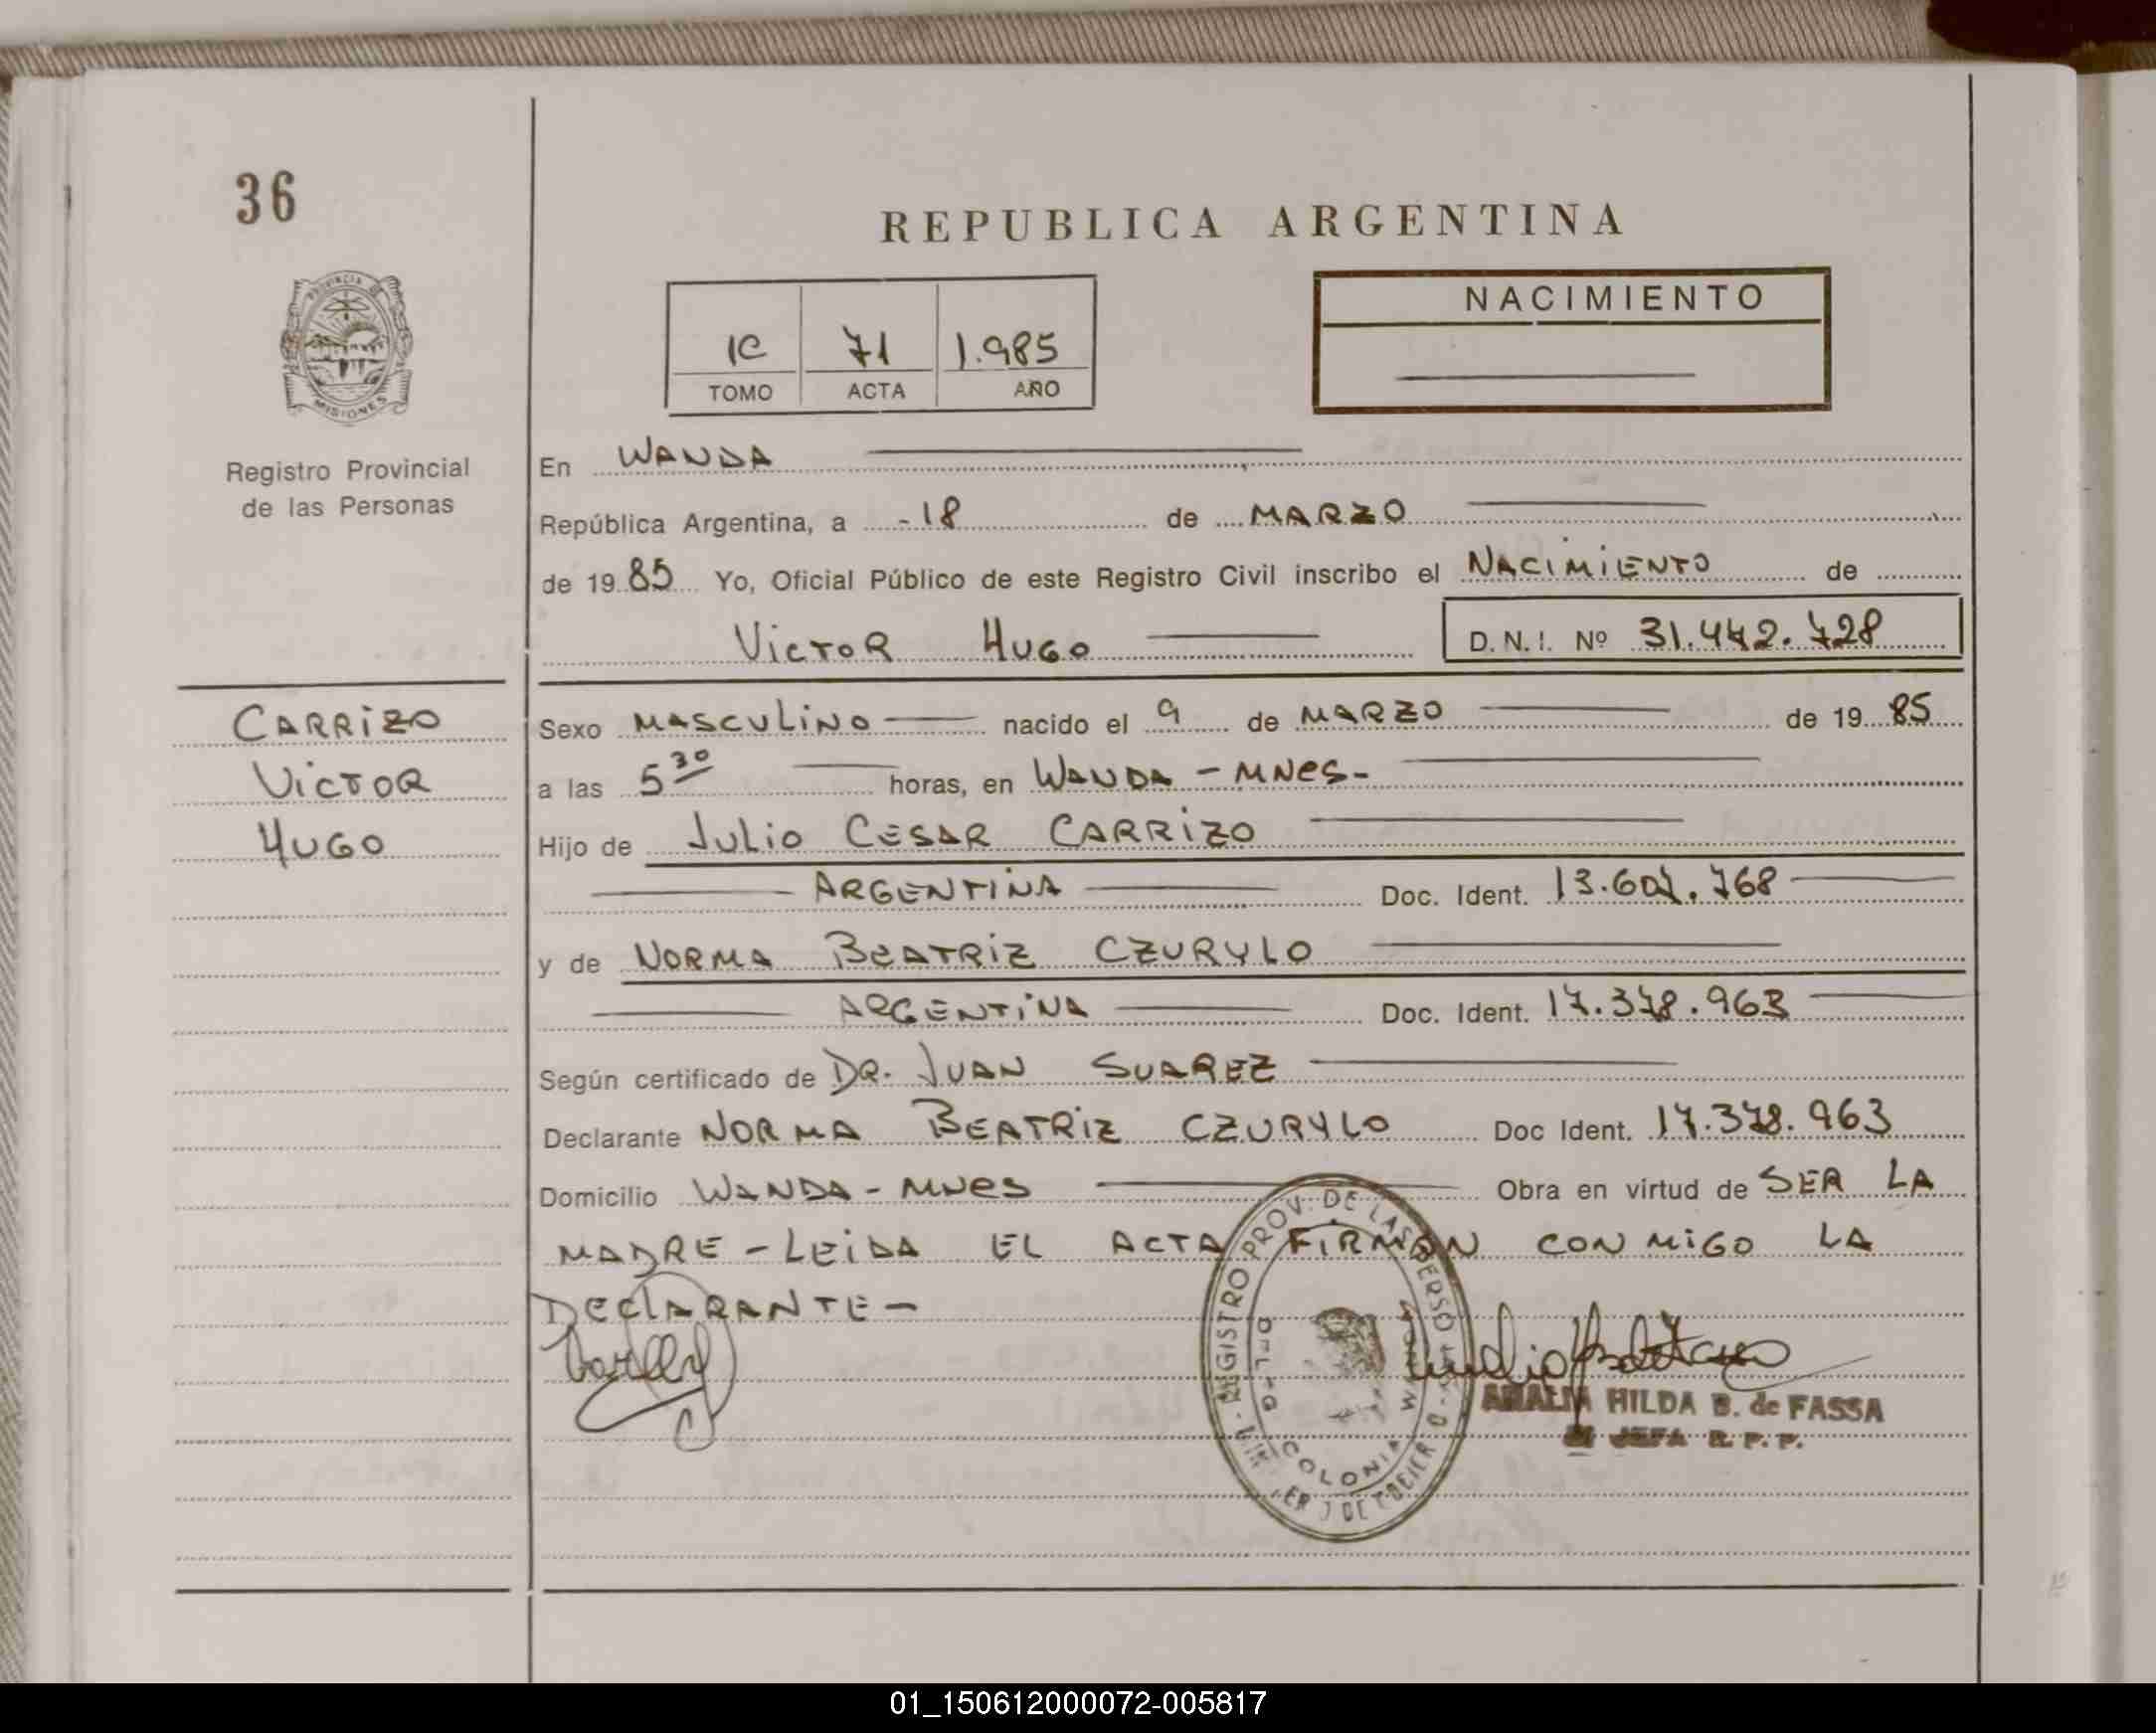 36
REPUBLICA ARGENTINA
NACIMIENTO
1C 71 1.985
TOMO ACTA AÑO
PROVINCIA DE MISIONES
Registro Provincial
de las Personas
En WANDA
República Argentina, a -18 de MARZO
de 1985 Yo, Oficial Público de este Registro Civil inscribo el NACIMIENTO de
VICTOR HUGO D.N.I. Nº 31.442.728
CARRIZO
VICTOR
HUGO
Sexo MASCULINO nacido el 9 de MARZO de 1985
a las 5 30 horas, en WANDA - MNES-
Hijo de JULIO CESAR CARRIZO
ARGENTINA Doc. Ident. 13.607.768
y de NORMA BEATRIZ CZURYLO
ARGENTINA Doc. Ident. 17.378.963
Según certificado de DR. JUAN SUAREZ
Declarante NORMA BEATRIZ CZURYLO Doc Ident. 17.378.963
Domicilio WANDA - MNES Obra en virtud de SER LA
MADRE - LEIDA EL ACTA FIRMAN CON MIGO LA
DECLARANTE -
REGISTRO PROV. DE LAS PERSO
COLONIA WANDA
AMALIA HILDA B. de FASSA
JEFA R. P. P.
01_150612000072-005817